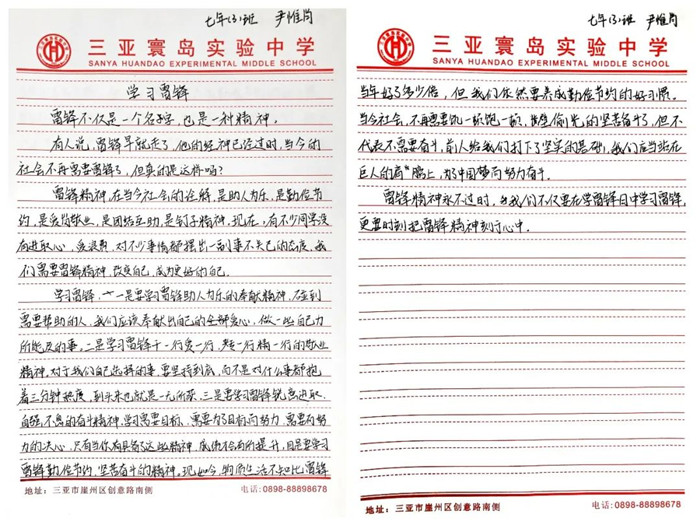 七年(3)班 尹惟尚
三亚寰岛实验中学
SANYA HUANDAO EXPERIMENTAL MIDDLE SCHOOL
学习雷锋
雷锋不仅是一个名字,也是一种精神。
有人说,雷锋早就死了,他的经神已经过时,当今的
社会不再需要雷锋了,但真的是这样吗?
雷锋精神,在当今社会的诠解,是助人为乐,是勤俭节
约,是爱岗敬业,是团结互助,是钉子精神。现在,有不少同学没
有进取心,对不少事情都摆出一副事不关己的态度,我
们需要雷锋精神,改变自己,成为更好的自己。
学习雷锋,一是要学习雷锋助人为乐的奉献精神,碰到
需要帮助的人,我们应该奉献出自己的全部爱心,做一些自己力
所能及的事。二是学习雷锋干一行爱一行,专一行精一行的敬业
精神,对于我们自己选择的事,要坚持到底,而不是对什么事都抱
着三分钟热度,到头来也就是一无所获。三是要学习雷锋锐意进取
自强不息的奋斗精神,学习需要目标,需要为了目标而努力,需要有努
力的决心,只有当你有具备了这些精神,成绩才会有所提升,四是要学习
雷锋勤俭节约,坚苦奋斗的精神。现如今,物质生活不知比雷锋
地址:三亚市崖州区创意路南侧 电话:0898-88898678
七年(3)班 尹惟尚
三亚寰岛实验中学
SANYA HUANDAO EXPERIMENTAL MIDDLE SCHOOL
当年好了多少倍,但我们依然要养成勤俭节约的好习惯。
当今社会,不再需要饥一顿饱一顿,凿壁偷光的坚苦奋斗了,但不
代表不需要奋斗,前人给我们打下了坚实的基础,我们应当站在
巨人的肩膀上,为了中国梦而努力奋斗。
雷锋精神永不过时,我们不仅要在学雷锋日中学习雷锋,
更要时刻把雷锋精神刻于心中。
地址:三亚市崖州区创意路南侧 电话:0898-88898678